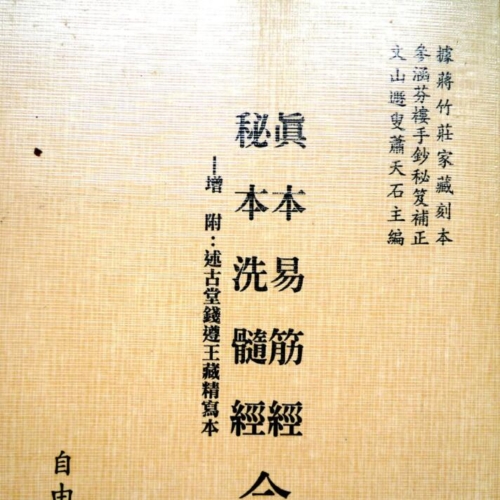 據蔣竹莊家藏刻本
參涵芬樓手鈔秘笈補正
文山遯叟蕭天石主編
眞本易筋經
秘本洗髓經
合
—增附：述古堂錢遵王藏精寫本
自由